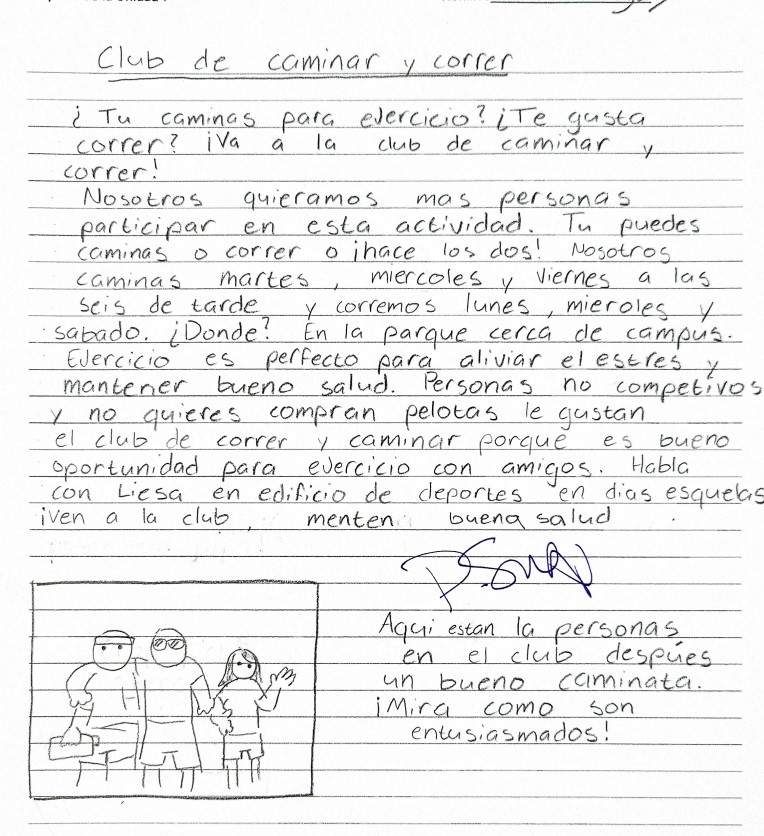 Club de caminar y correr
¿Tu caminas para ejercicio? ¿Te gusta
correr? ¡Va a la club de caminar y
correr!
Nosotros quieramos mas personas
participar en esta actividad. Tu puedes
caminas o correr o ¡hace los dos! Nosotros
caminas martes, miercoles y viernes a las
seis de tarde y corremos lunes, mieroles y
sabado. ¿Donde? En la parque cerca de campus.
Ejercicio es perfecto para aliviar el estres y
mantener bueno salud. Personas no competivos
y no quieres compran pelotas le gustan
el club de correr y caminar porque es bueno
oportunidad para ejercicio con amigos. Habla
con Liesa en edificio de deportes en dias esquelas
¡ven a la club, menten buena salud
Aqui estan la personas
en el club despúes
un bueno caminata.
¡Mira como son
entusiasmados!